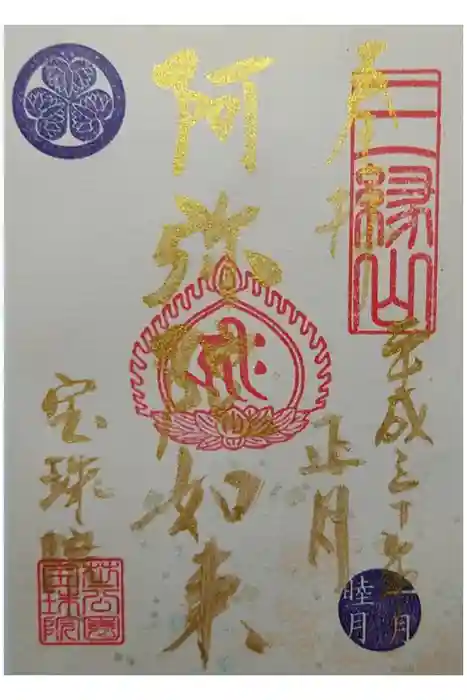 奉拝
三縁山
平成三十年
正月
一月
睦月
阿弥陀如来
宝珠院
芝公園
宝珠院